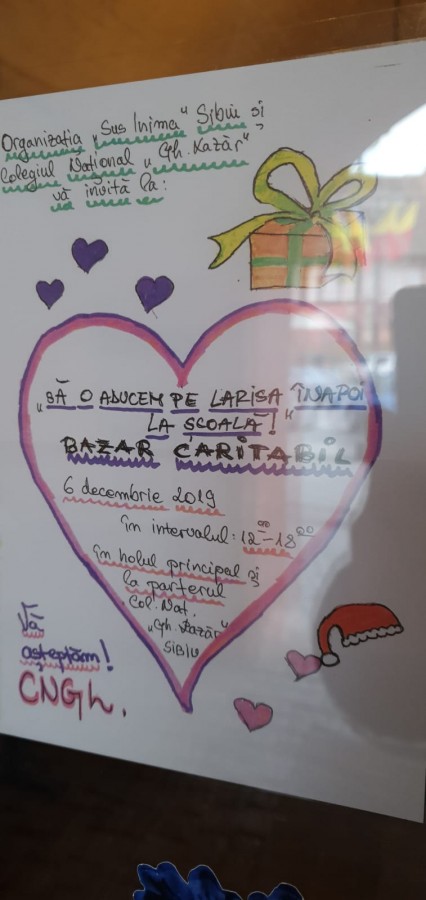 Organizația „Sus Inima" Sibiu și
Colegiul Național „Gh. Lazăr"
vă invită la:
„SĂ O ADUCEM PE LARISA ÎNAPOI
LA ȘCOALĂ!"
BAZAR CARITABIL
6 decembrie 2019
în intervalul: 12⁰⁰-18⁰⁰
în holul principal și
la parterul
Col. Nat.
„Gh. Lazăr"
SIBIU
Vă
așteptăm!
CNGL.